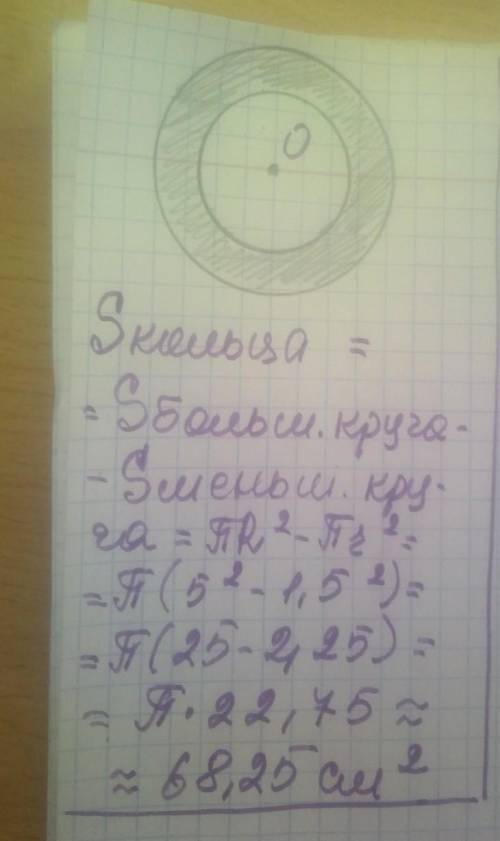 O
Sкольца =
= Sбольш. круга -
- Sменьш. кру-
га = ПR² - Пr² =
= П(5² - 1,5²) =
= П(25 - 2,25) =
= П · 22,75 ≈
≈ 68,25 см²